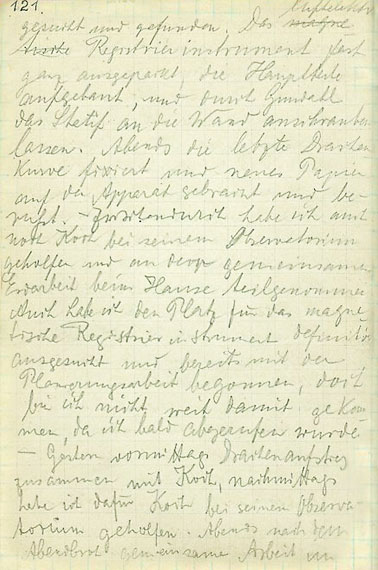 121.
gesucht und gefunden. Das luftelektri
magne
tische Registrierinstrument fast
ganz ausgepackt, die Hauptteile
aufgebaut, und durch Gundahl
das Stativ an die Wand anschrauben
lassen. Abends die letzte Drachen
kurve fixiert und neues Papier
auf den Apparat gebracht und be-
rußt. – Zwischendurch habe ich auch
noch Koch bei seinem Observatorium
geholfen und an der gemeinsamen
Erdarbeit beim Hause teilgenommen
Auch habe ich den Platz für das magne
tische Registrierinstrument definitiv
ausgesucht und bereits mit der
Planierungsarbeit begonnen, doch
bin ich nicht weit damit gekom
men, da ich bald abgerufen wurde
– Gestern vormittags Drachenaufstieg
zusammen mit Koch, nachmittags
habe ich dafür Koch bei seinem Observa
torium geholfen. Abends nach dem
Abendbrot gemeinsame Arbeit im